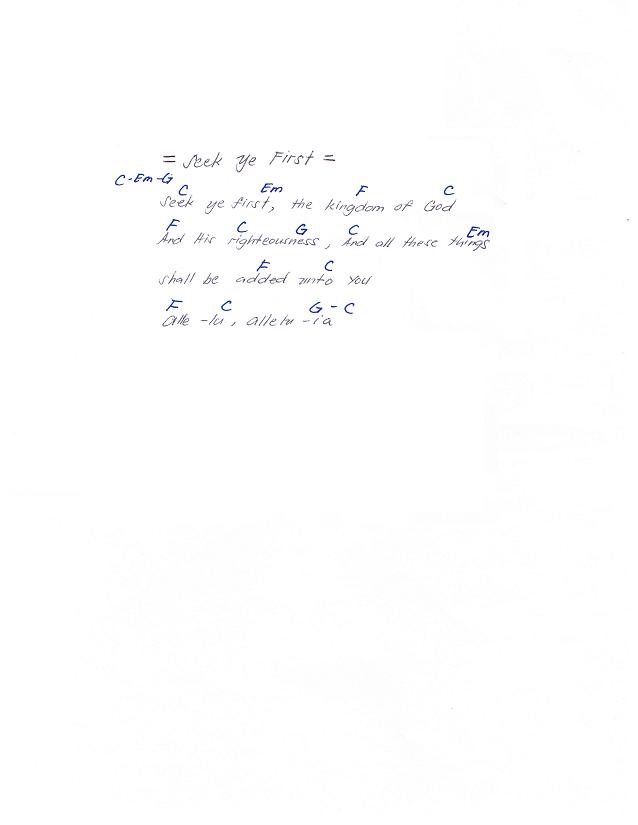 = Seek ye First =
C-Em-G
C Em F C
Seek ye first, the kingdom of God
F C G C Em
And His righteousness, And all these things
F C
shall be added unto you
F C G - C
alle -lu, allelu -ia